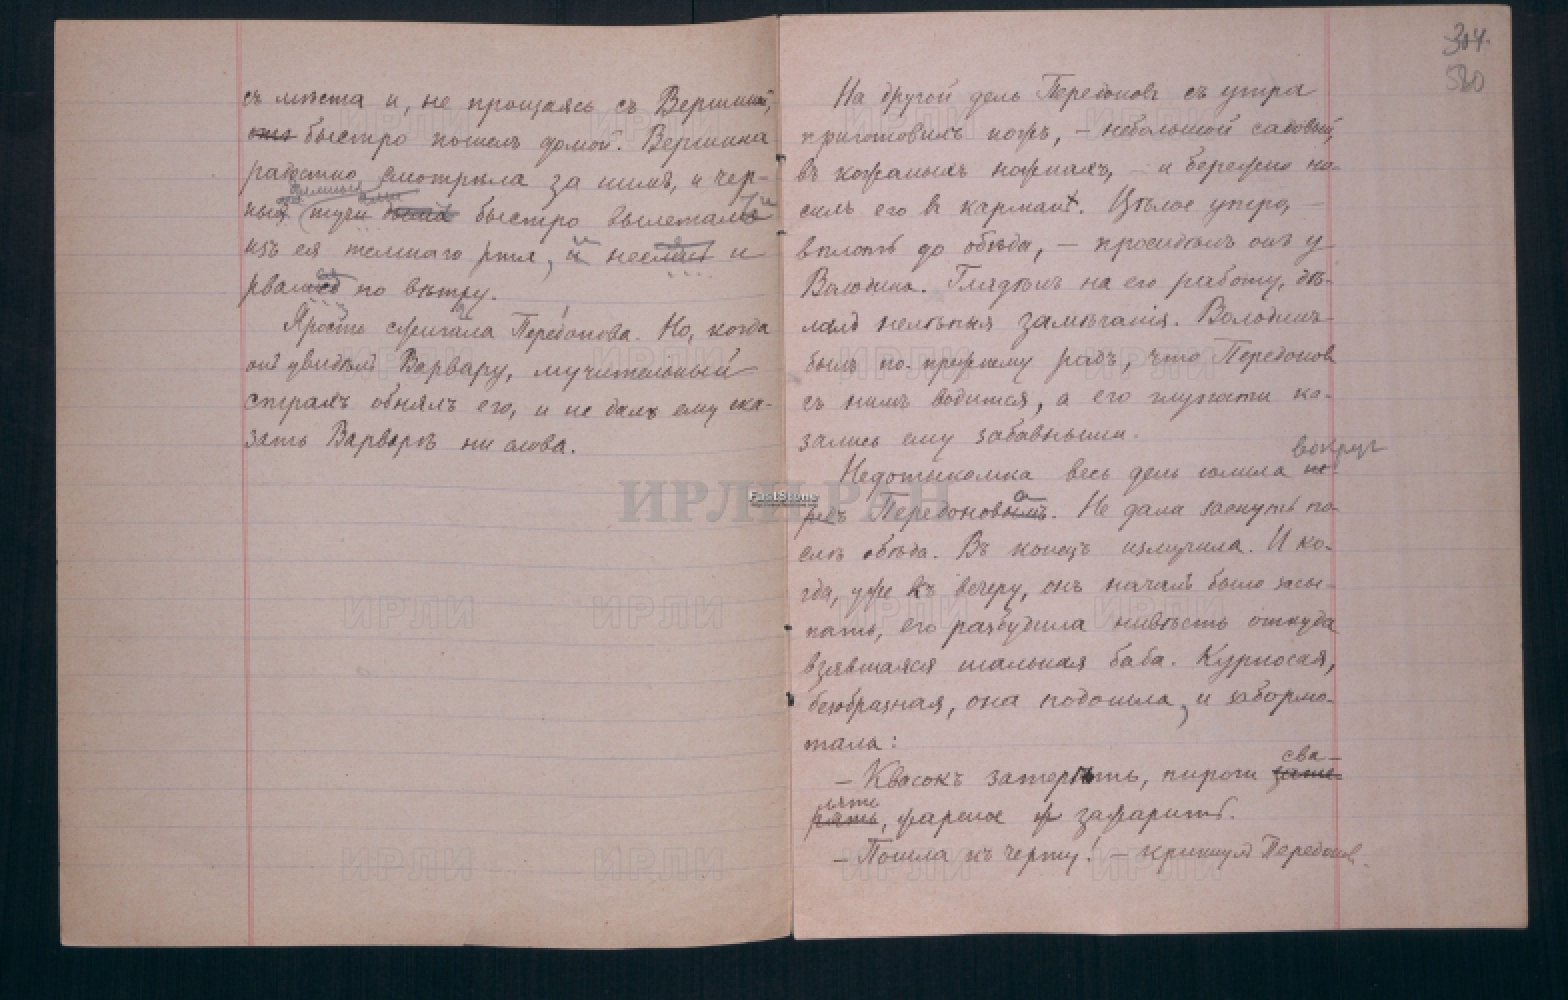 съ мѣста и, не прощаясь съ Вершиной,
онъ быстро пошелъ домой. Вершина
радостно смотрѣла за нимъ, и чер-
дымные
ныя тучи дыма быстро вылетали
изъ ея темнаго рта, и неслись и
рвались по вѣтру.
Ярость сжигала Передонова. Но, когда
онъ увидѣлъ Варвару, мучительный
страхъ обнялъ его, и не далъ ему ска-
зать Варварѣ ни слова.
304.
580
На другой день Передоновъ съ утра
приготовилъ ножъ, – небольшой садовый,
въ кожаныхъ ножнахъ, – и бережно но-
силъ его в карманѣ. Цѣлое утро, –
вплоть до обѣда, – просидѣлъ онъ у
Володина. Глядѣлъ на его работу, дѣ-
лалъ нелѣпыя замѣчанія. Володинъ
былъ по-прежнему радъ, что Передонов
съ нимъ водится, а его глупости ка-
зались ему забавными.
вокруг
Недотыкомка весь день юлила пе-
редъ Передоновымъ. Не дала заснуть по-
слѣ обѣда. Въ конецъ измучила. И ко-
гда, уже къ вечеру, онъ началъ было засы-
пать, его разбудила нивѣсть откуда
взявшаяся шальная баба. Курносая,
безобразная, она подошла, и забормо-
тала:
сва-
– Квасокъ затереть, пироги зате-
лять
рять, жареное ж зажарить.
– Пошла къ черту! – крикнулъ Передонов.
ИРЛИ РАН
FastStone
ИРЛИ ИРЛИ ИРЛИ ИРЛИ
ИРЛИ ИРЛИ ИРЛИ ИРЛИ
ИРЛИ ИРЛИ ИРЛИ ИРЛИ
ИРЛИ ИРЛИ ИРЛИ ИРЛИ